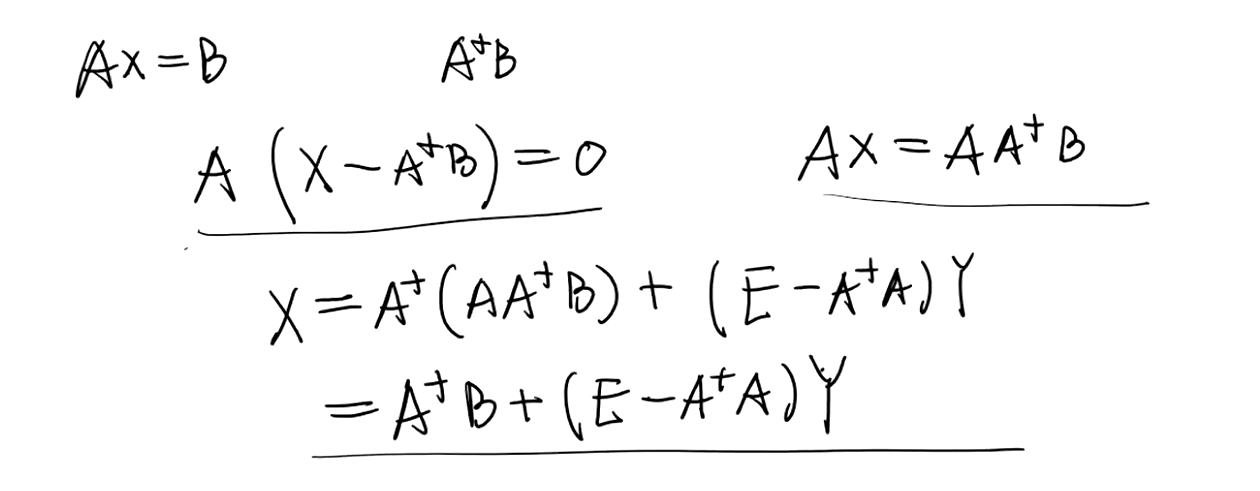 Ax=B A⁺B
A(X-A⁺B)=0 AX=AA⁺B
X=A⁺(AA⁺B)+(E-A⁺A)Y
=A⁺B+(E-A⁺A)Y